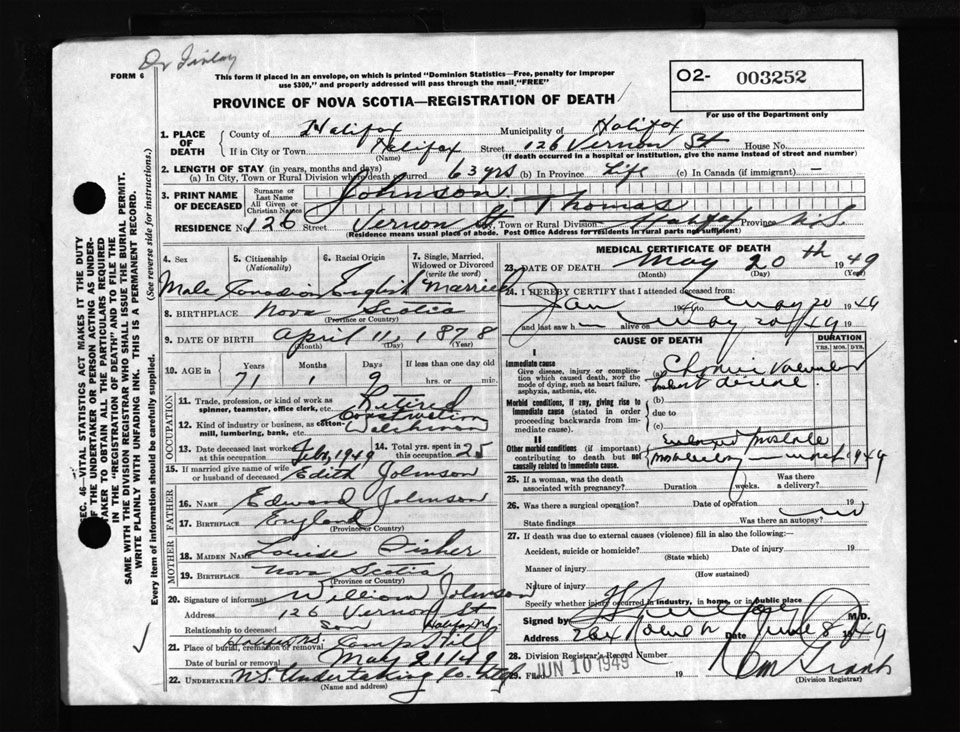 Dr Finlay
FORM 6
This form if placed in an envelope, on which is printed "Dominion Statistics—Free, penalty for improper
use $300," and properly addressed will pass through the mail "FREE"
O2- 003252
For use of the Department only
PROVINCE OF NOVA SCOTIA—REGISTRATION OF DEATH
SEC. 46—VITAL STATISTICS ACT MAKES IT THE DUTY
OF THE UNDERTAKER OR PERSON ACTING AS UNDER-
TAKER TO OBTAIN ALL THE PARTICULARS REQUIRED
IN THE "REGISTRATION OF DEATH" AND TO FILE THE
SAME WITH THE DIVISION REGISTRAR WHO SHALL ISSUE THE BURIAL PERMIT.
WRITE PLAINLY WITH UNFADING INK. THIS IS A PERMANENT RECORD.
Every item of information should be carefully supplied. (See reverse side for instructions.)
1. PLACE OF DEATH
County of Halifax Municipality of Halifax
If in City or Town Halifax Street 126 Vernon St House No.
(Name) (If death occurred in a hospital or institution, give the name instead of street and number)
2. LENGTH OF STAY (in years, months and days)
(a) In City, Town or Rural Division where death occurred 63 yrs (b) In Province Life (c) In Canada (if immigrant) —
3. PRINT NAME OF DECEASED
Surname or Last Name Johnson
All Given or Christian Names Thomas
RESIDENCE No. 126 Street Vernon St, Town or Rural Division Halifax Province N.S.
(Residence means usual place of abode. Post Office Address for residents in rural parts not sufficient)
4. Sex 5. Citizenship (Nationality) 6. Racial Origin 7. Single, Married, Widowed or Divorced (write the word)
Male Canadian English Married
8. BIRTHPLACE Nova Scotia
(Province or Country)
9. DATE OF BIRTH April 11, 1878
(Month) (Day) (Year)
10. AGE in Years Months Days If less than one day old
71 1 9 hrs. or min.
OCCUPATION
11. Trade, profession, or kind of work as
spinner, teamster, office clerk, etc. Retired
12. Kind of industry or business, as cotton-
mill, lumbering, bank, etc. Construction Watchman
13. Date deceased last worked at this occupation Feb, 1949 14. Total yrs. spent in this occupation 25
15. If married give name of wife
or husband of deceased Edith Johnson
FATHER
16. Name Edward Johnson
17. Birthplace England
(Province or Country)
MOTHER
18. Maiden Name Louise Fisher
19. Birthplace Nova Scotia
(Province or Country)
20. Signature of informant William Johnson
Address 126 Vernon St
Relationship to deceased Son Halifax N.S.
21. Place of burial, cremation or removal Halifax N.S. Camp Hill
Date of burial or removal May 21/49
22. UNDERTAKER N.S. Undertaking Co. Ltd
(Name and address)
MEDICAL CERTIFICATE OF DEATH
23. DATE OF DEATH May 20th 1949
(Month) (Day) (Year)
24. I HEREBY CERTIFY that I attended deceased from:
Jan 1949 to May 20 1949
and last saw h alive on May 20/49 19
CAUSE OF DEATH
DURATION
YRS. MOS. DYS.
I
Immediate cause
Give disease, injury or complica-
tion which caused death, NOT the
mode of dying, such as heart failure,
asphyxia, asthenia, etc.
(a) Chronic
heart disease
Morbid conditions, if any, giving rise to
immediate cause (stated in order
proceeding backwards from im-
mediate cause).
(b)
due to
(c)
II
Other morbid conditions (if important)
contributing to death but not
causally related to immediate cause.
Enlarged Prostate
March 1949
25. If a woman, was the death
associated with pregnancy? Duration weeks. Was there a delivery?
26. Was there a surgical operation? Date of operation 19
State findings Was there an autopsy? no
27. If death was due to external causes (violence) fill in also the following:—
Accident, suicide or homicide? Date of injury 19
(State which)
Manner of injury
(How sustained)
Nature of injury
Specify whether injury occurred in industry, in home, or in public place
Signed by M.D.
Address Date June 8 1949
28. Division Registrar's Record Number
29. Filed JUN 10 1949 19
(Division Registrar)